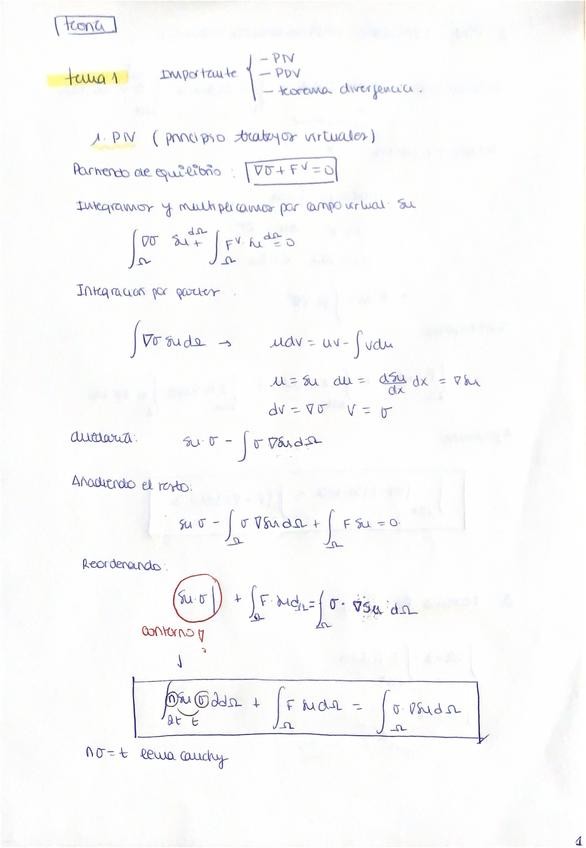 teoría
tema 1
Importante { - PTV
- PDV
- teorema divergencia.
1. PTV (principio trabajos virtuales)
Partiendo de equilibrio: ∇σ + Fᵛ = 0
Integramos y multiplicamos por campo virtual δu
∫_Ω ∇σ δu dΩ + ∫_Ω Fᵛ δu dΩ = 0
Integración por partes:
∫ ∇σ δu dΩ → u dv = uv - ∫ v du
u = δu du = dδu/dx dx = ∇δu
dv = ∇σ v = σ
quedaría: δu · σ - ∫ σ ∇δu dΩ
Añadiendo el resto:
δu σ - ∫_Ω σ ∇δu dΩ + ∫_Ω F δu = 0
Reordenando:
δu · σ | + ∫_Ω F · δu dΩ = ∫_Ω σ · ∇δu dΩ
contorno
↓
∫ n δu σ ∂dΩ + ∫_Ω F δu dΩ = ∫_Ω σ · ∇δu dΩ
∂t t
nσ = t lema cauchy
1